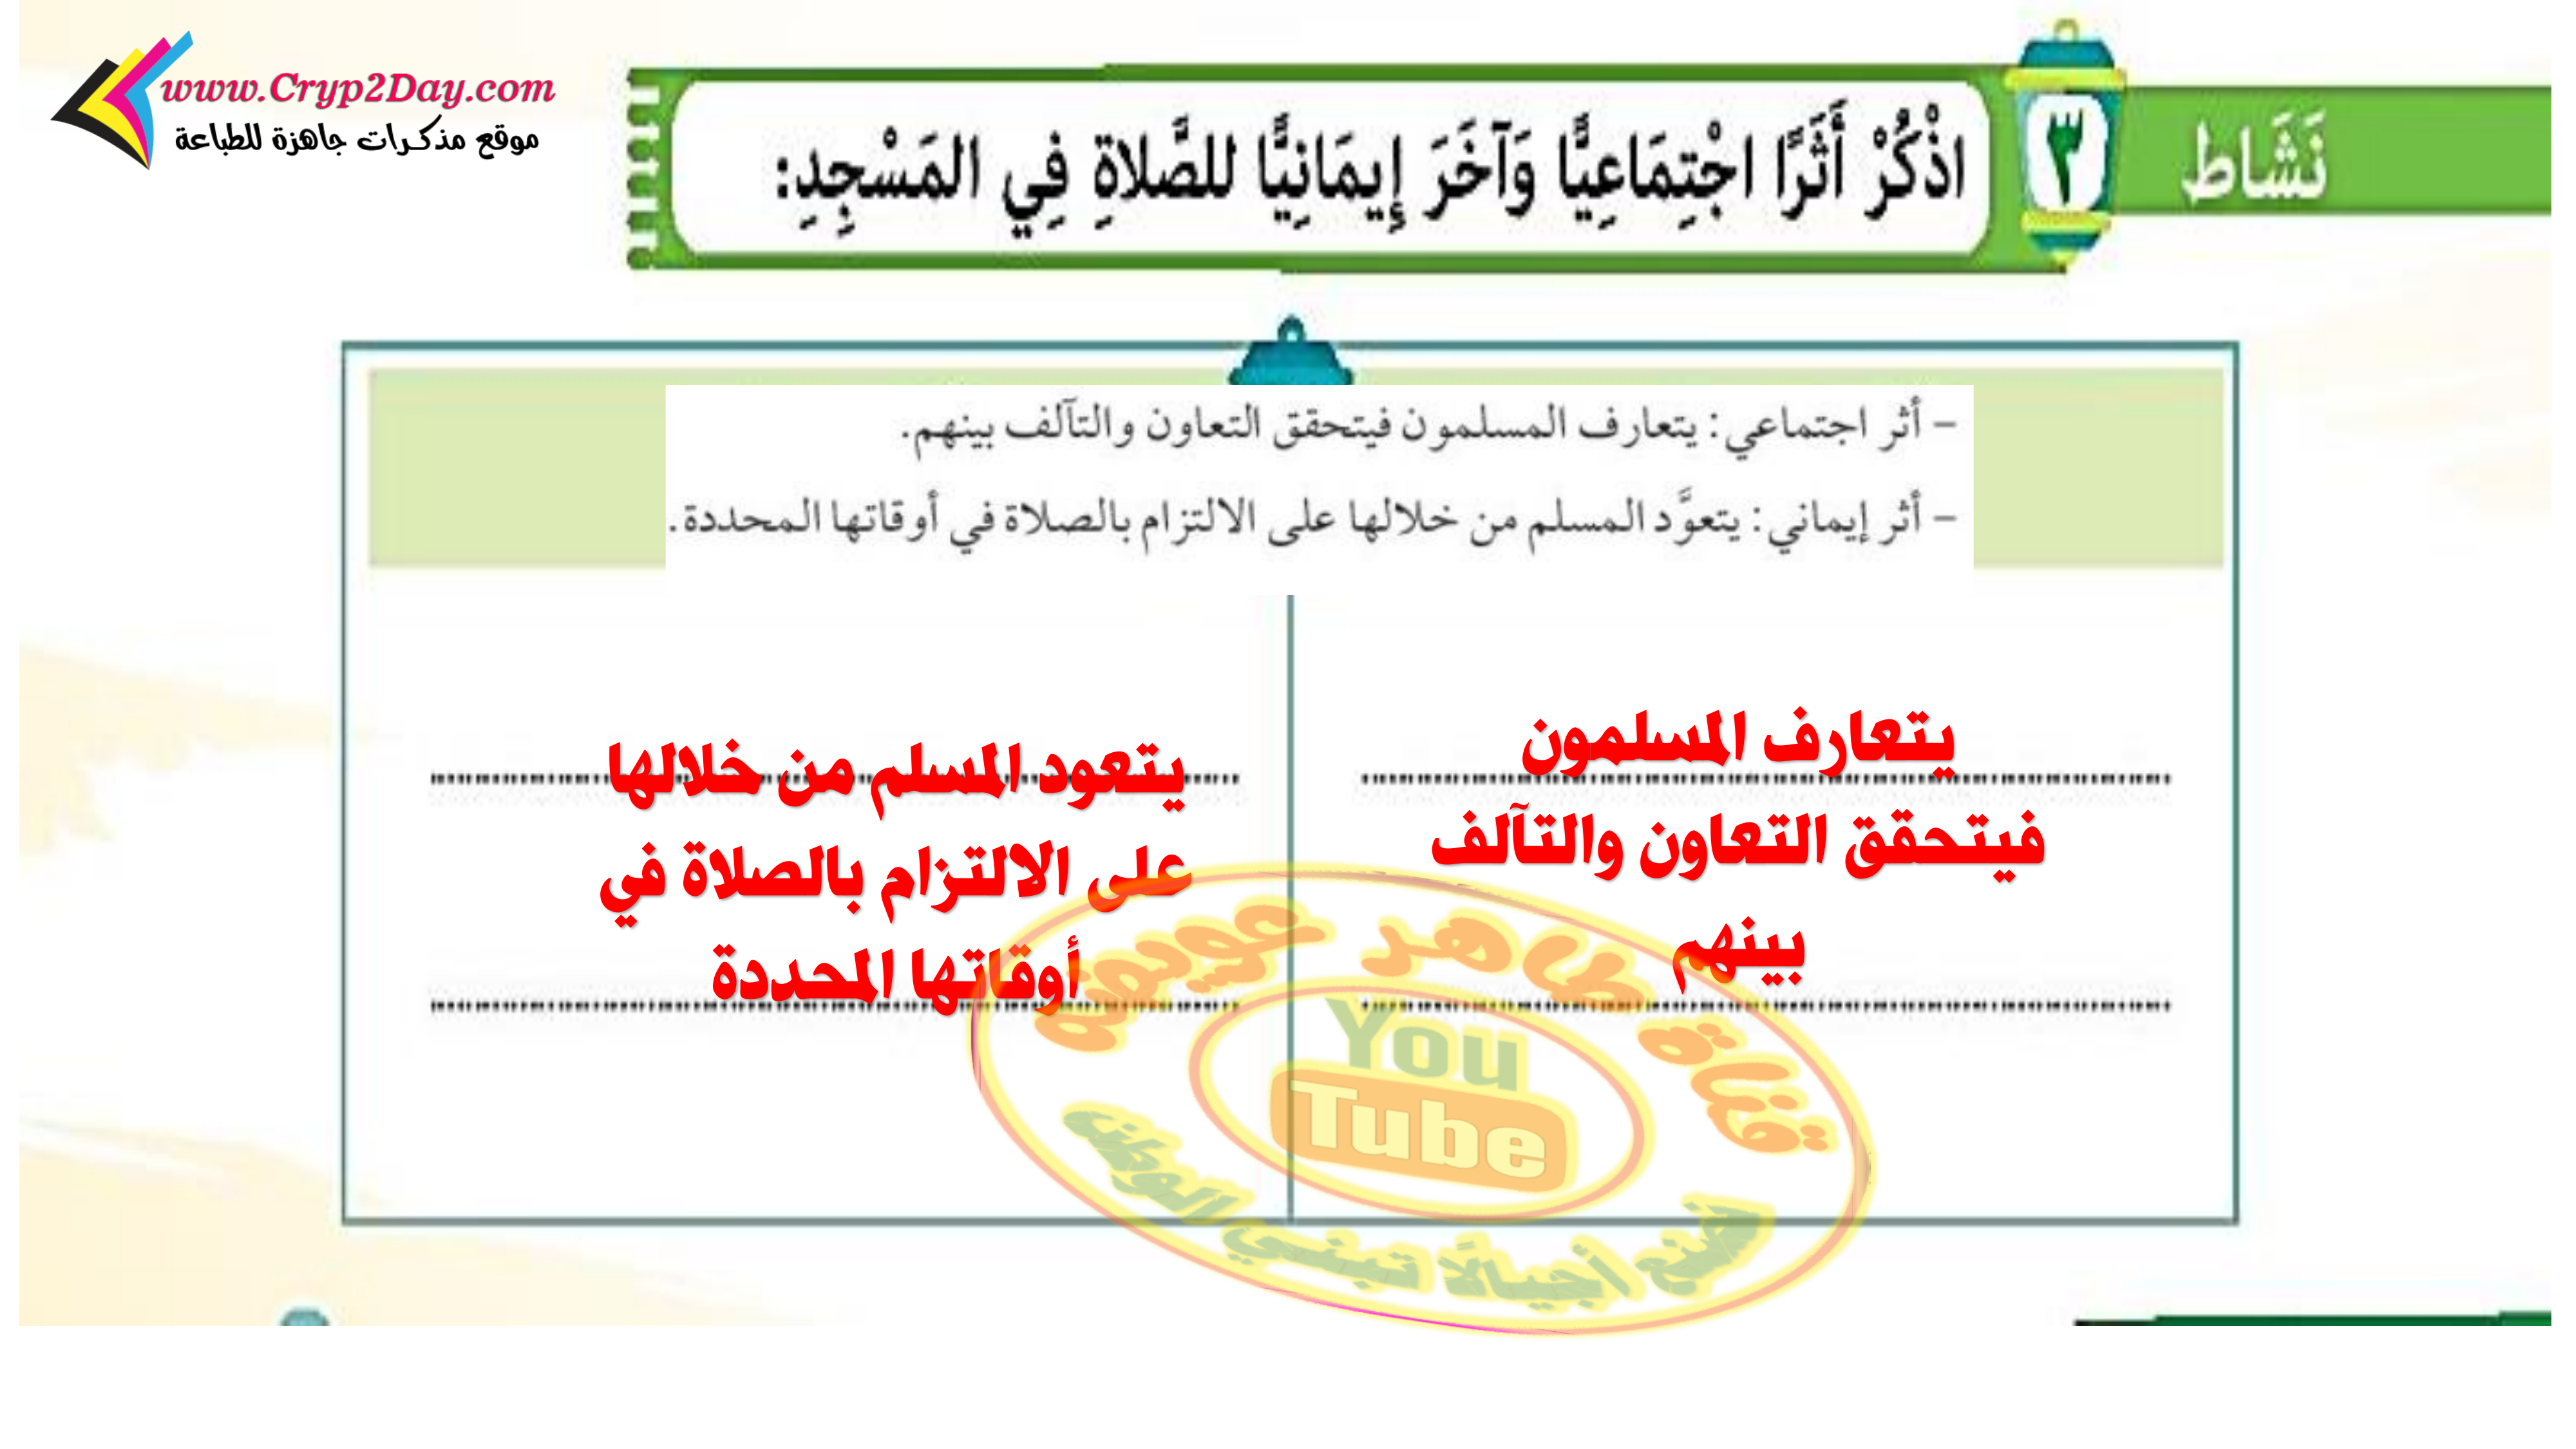 www.Cryp2Day.com
موقع مذكرات جاهزة للطباعة
نَشَاط ٣ اذْكُرْ أَثَرًا اجْتِمَاعِيًّا وَآخَرَ إِيمَانِيًّا للصَّلاةِ فِي المَسْجِدِ:
– أثر اجتماعي: يتعارف المسلمون فيتحقق التعاون والتآلف بينهم.
– أثر إيماني: يتعوَّد المسلم من خلالها على الالتزام بالصلاة في أوقاتها المحددة.
يتعارف المسلمون
فيتحقق التعاون والتآلف
بينهم
يتعود المسلم من خلالها
على الالتزام بالصلاة في
أوقاتها المحددة
قناة طاهر
You
Tube
لنصنع أجيالًا تبني الوطن